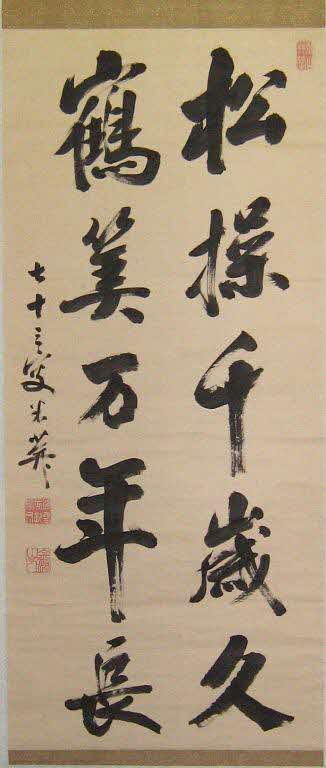 松操千歳久
鶴筭万年長
七十三叟米菴